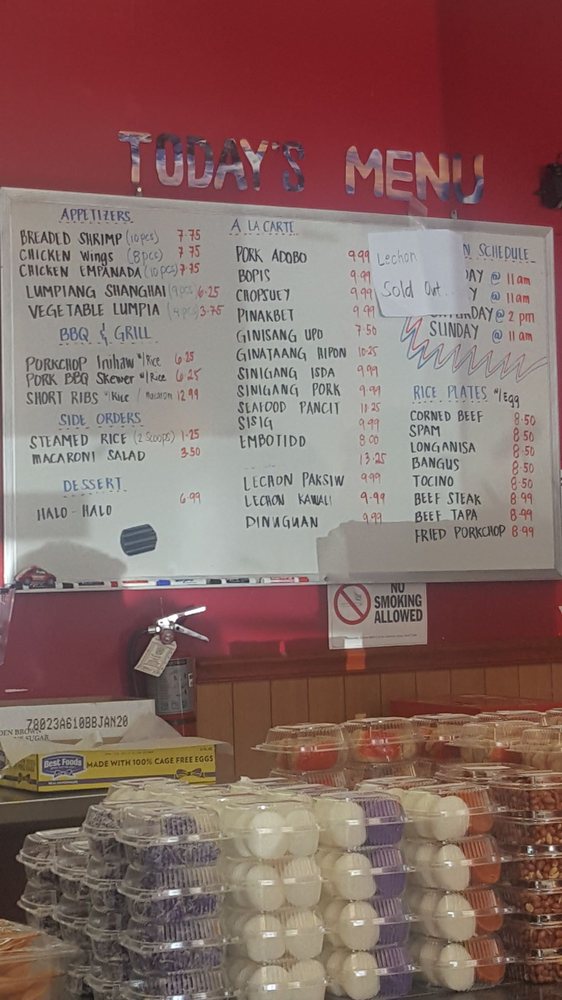 TODAY'S MENU
APPETIZERS
BREADED SHRIMP (10pcs) 7.75
CHICKEN Wings (8pcs) 7.75
CHICKEN EMPANADA (10pcs) 7.75
LUMPIANG SHANGHAI (9pcs) 6.25
VEGETABLE LUMPIA (4pcs) 3.75
BBQ & GRILL
PORKCHOP Inihaw w/Rice 6.25
PORK BBQ Skewer w/Rice 6.25
SHORT RIBS w/Rice / Macaroni 12.99
SIDE ORDERS
STEAMED RICE (2 SCOOPS) 1.25
MACARONI SALAD 3.50
DESSERT
HALO-HALO 6.99
A LA CARTE
PORK ADOBO 9.99
BOPIS 9.99
CHOPSUEY 9.99
PINAKBET 9.99
GINISANG UPO 7.50
GINATAANG HIPON 10.25
SINIGANG ISDA 9.99
SINIGANG PORK 9.99
SEAFOOD PANCIT 11.25
SISIG 9.99
EMBOTIDO 8.00
13.25
LECHON PAKSIW 9.99
LECHON KAWALI 9.99
DINUGUAN 9.99
Lechon
Sold Out..
N SCHEDULE
DAY @ 11am
Y @ 11am
SATURDAY @ 2 pm
SUNDAY @ 11 am
RICE PLATES w/Egg
CORNED BEEF 8.50
SPAM 8.50
LONGANISA 8.50
BANGUS 8.50
TOCINO 8.50
BEEF STEAK 8.99
BEEF TAPA 8.99
FRIED PORKCHOP 8.99
NO
SMOKING
ALLOWED
78023A610BBJAN20
DEN BROWN
SUGAR
Best Foods
MADE WITH 100% CAGE FREE EGGS